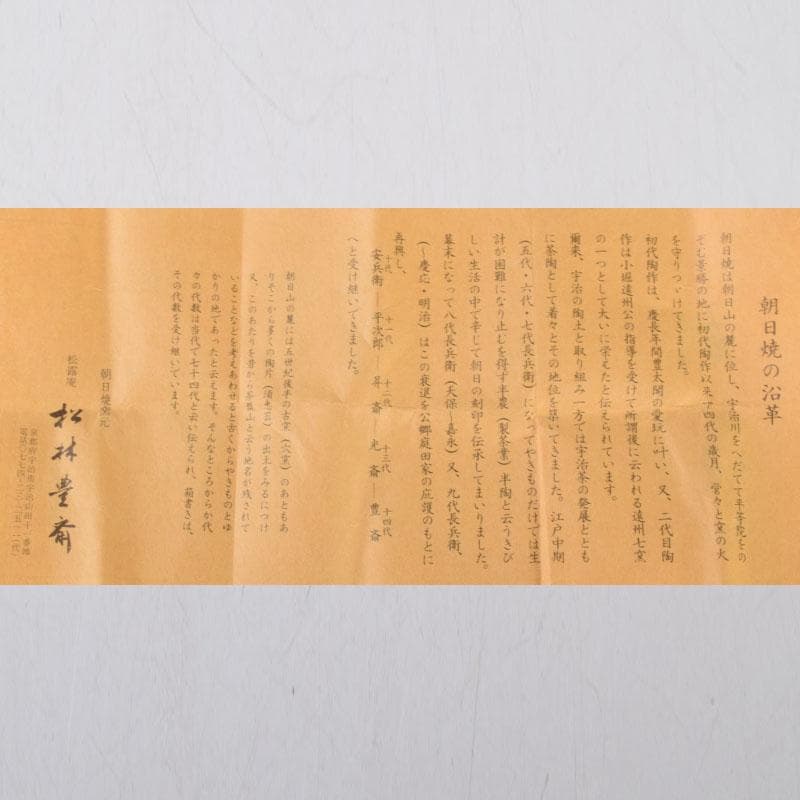 朝日焼の沿革
朝日焼は朝日山の麓に位し、宇治川をへだてて平等院をの
ぞむ景勝の地に初代陶作以来十四代の歳月、営々と窯の火
を守りつゞけてきました。
初代陶作は、慶長年間豊太閤の愛玩に叶い、又、二代目陶
作は小堀遠州公の指導を受けて所謂後に云われる遠州七窯
の一つとして大いに栄えたと伝えられています。
爾来、宇治の陶土と取り組み一方では宇治茶の発展ととも
に茶陶として着々とその地位を築いてきました。江戸中期
(五代・六代・七代長兵衛)になってやきものだけでは生
計が困難になり止むを得ず半農(製茶業)半陶と云うきび
しい生活の中で辛じて朝日の刻印を伝承してまいりました。
幕末になって八代長兵衛(天保―嘉永)又、九代長兵衛、
(〜慶応・明治)はこの衰退を公郷庭田家の庇護のもとに
再興し、
十代 十一代 十二代 十三代 十四代
安兵衛―平次郎 昇斎 光斎―豊斎
へと受け継いできました。
朝日山の麓には五世紀後半の古窯(穴窯)のあともあ
りそこから多くの陶片(須恵器)の出土をみるにつけ
又、このあたりを昔から茶碗山と云う地名が残されて
いることなどを考えあわせると古くからやきものとゆ
かりの地であったと云えます。そんなところからか代
々の代数は当代で七十四代と云い伝えられ、箱書きは、
その代数を受け継いでいます。
朝日焼窯元
松露庵 松林豊斎
京都府宇治市宇治山田十一番地
電話〇七七四‐二三‐二五一一(代)